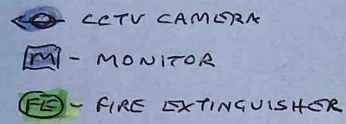 CCTV CAMERA
M - MONITOR
FE - FIRE EXTINGUISHER